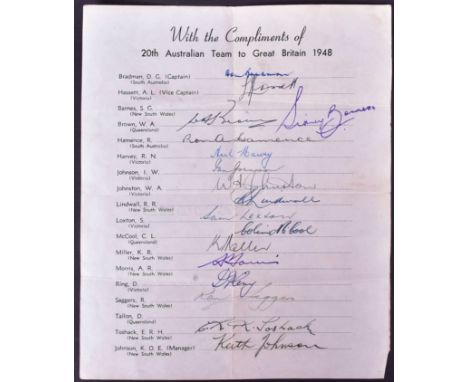 With the Compliments of
20th Australian Team to Great Britain 1948
Bradman, D. G. (Captain)
(South Australia)
Hassett, A. L. (Vice Captain)
(Victoria)
Barnes, S. G.
(New South Wales)
Sidney Barnes
Brown, W. A.
(Queensland)
Hamence, R.
(South Australia)
Ron A Hamence
Harvey, R. N.
(Victoria)
Neil Harvey
Johnson, I. W.
(Victoria)
Ian Johnson
Johnston, W. A.
(Victoria)
W A Johnston
Lindwall, R. R.
(New South Wales)
R Lindwall
Loxton, S.
(Victoria)
Sam Loxton
McCool, C. L.
(Queensland)
Colin McCool
Miller, K. R.
(New South Wales)
K Miller
Morris, A. R.
(New South Wales)
A Morris
Ring, D.
(Victoria)
D Ring
Saggers, R.
(New South Wales)
Ron Saggers
Tallon, D.
(Queensland)
Toshack, E. R. H.
(New South Wales)
E. R. H. Toshack
Johnson, K. O. E. (Manager)
(New South Wales)
Keith Johnson